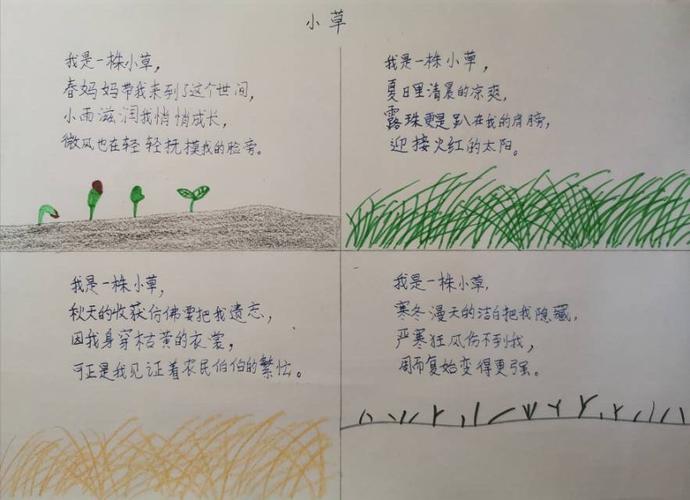 小草
我是一株小草，
春妈妈带我来到了这个世间，
小雨滋润我悄悄成长，
微风也在轻轻抚摸我的脸旁。
我是一株小草，
夏日里清晨的凉爽，
露珠更是趴在我的肩膀，
迎接火红的太阳。
我是一株小草，
秋天的收获仿佛要把我遗忘，
因我身穿枯黄的衣裳，
可正是我见证着农民伯伯的繁忙。
我是一株小草，
寒冬漫天的洁白把我隐藏，
严寒狂风伤不到我，
周而复始变得更强。